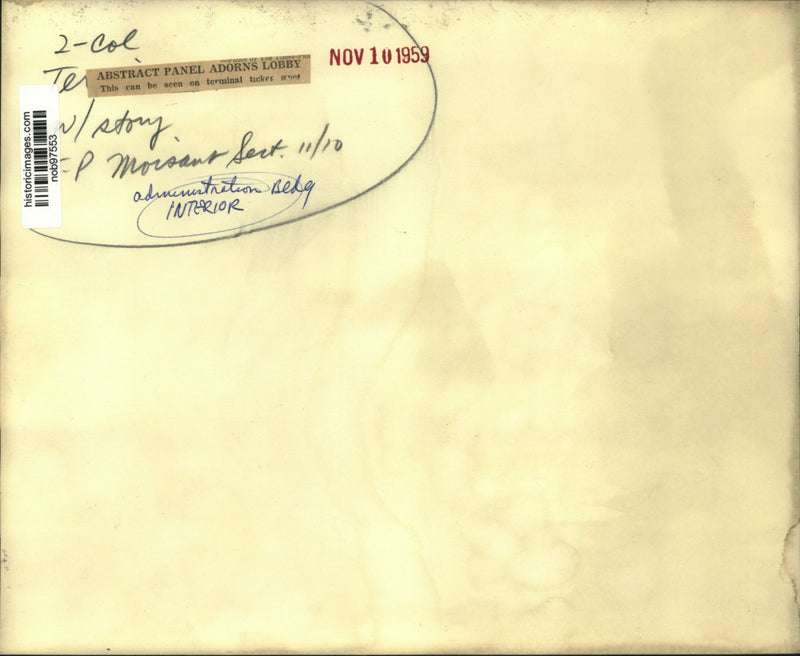 2-col
NOV 10 1959
—Photo by The Times-Pic
ABSTRACT PANEL ADORNS LOBBY
This can be seen on terminal ticket
w/ story
T-P Moisant Sect. 11/10
administration Bldg
INTERIOR
historicimages.com
nob97553